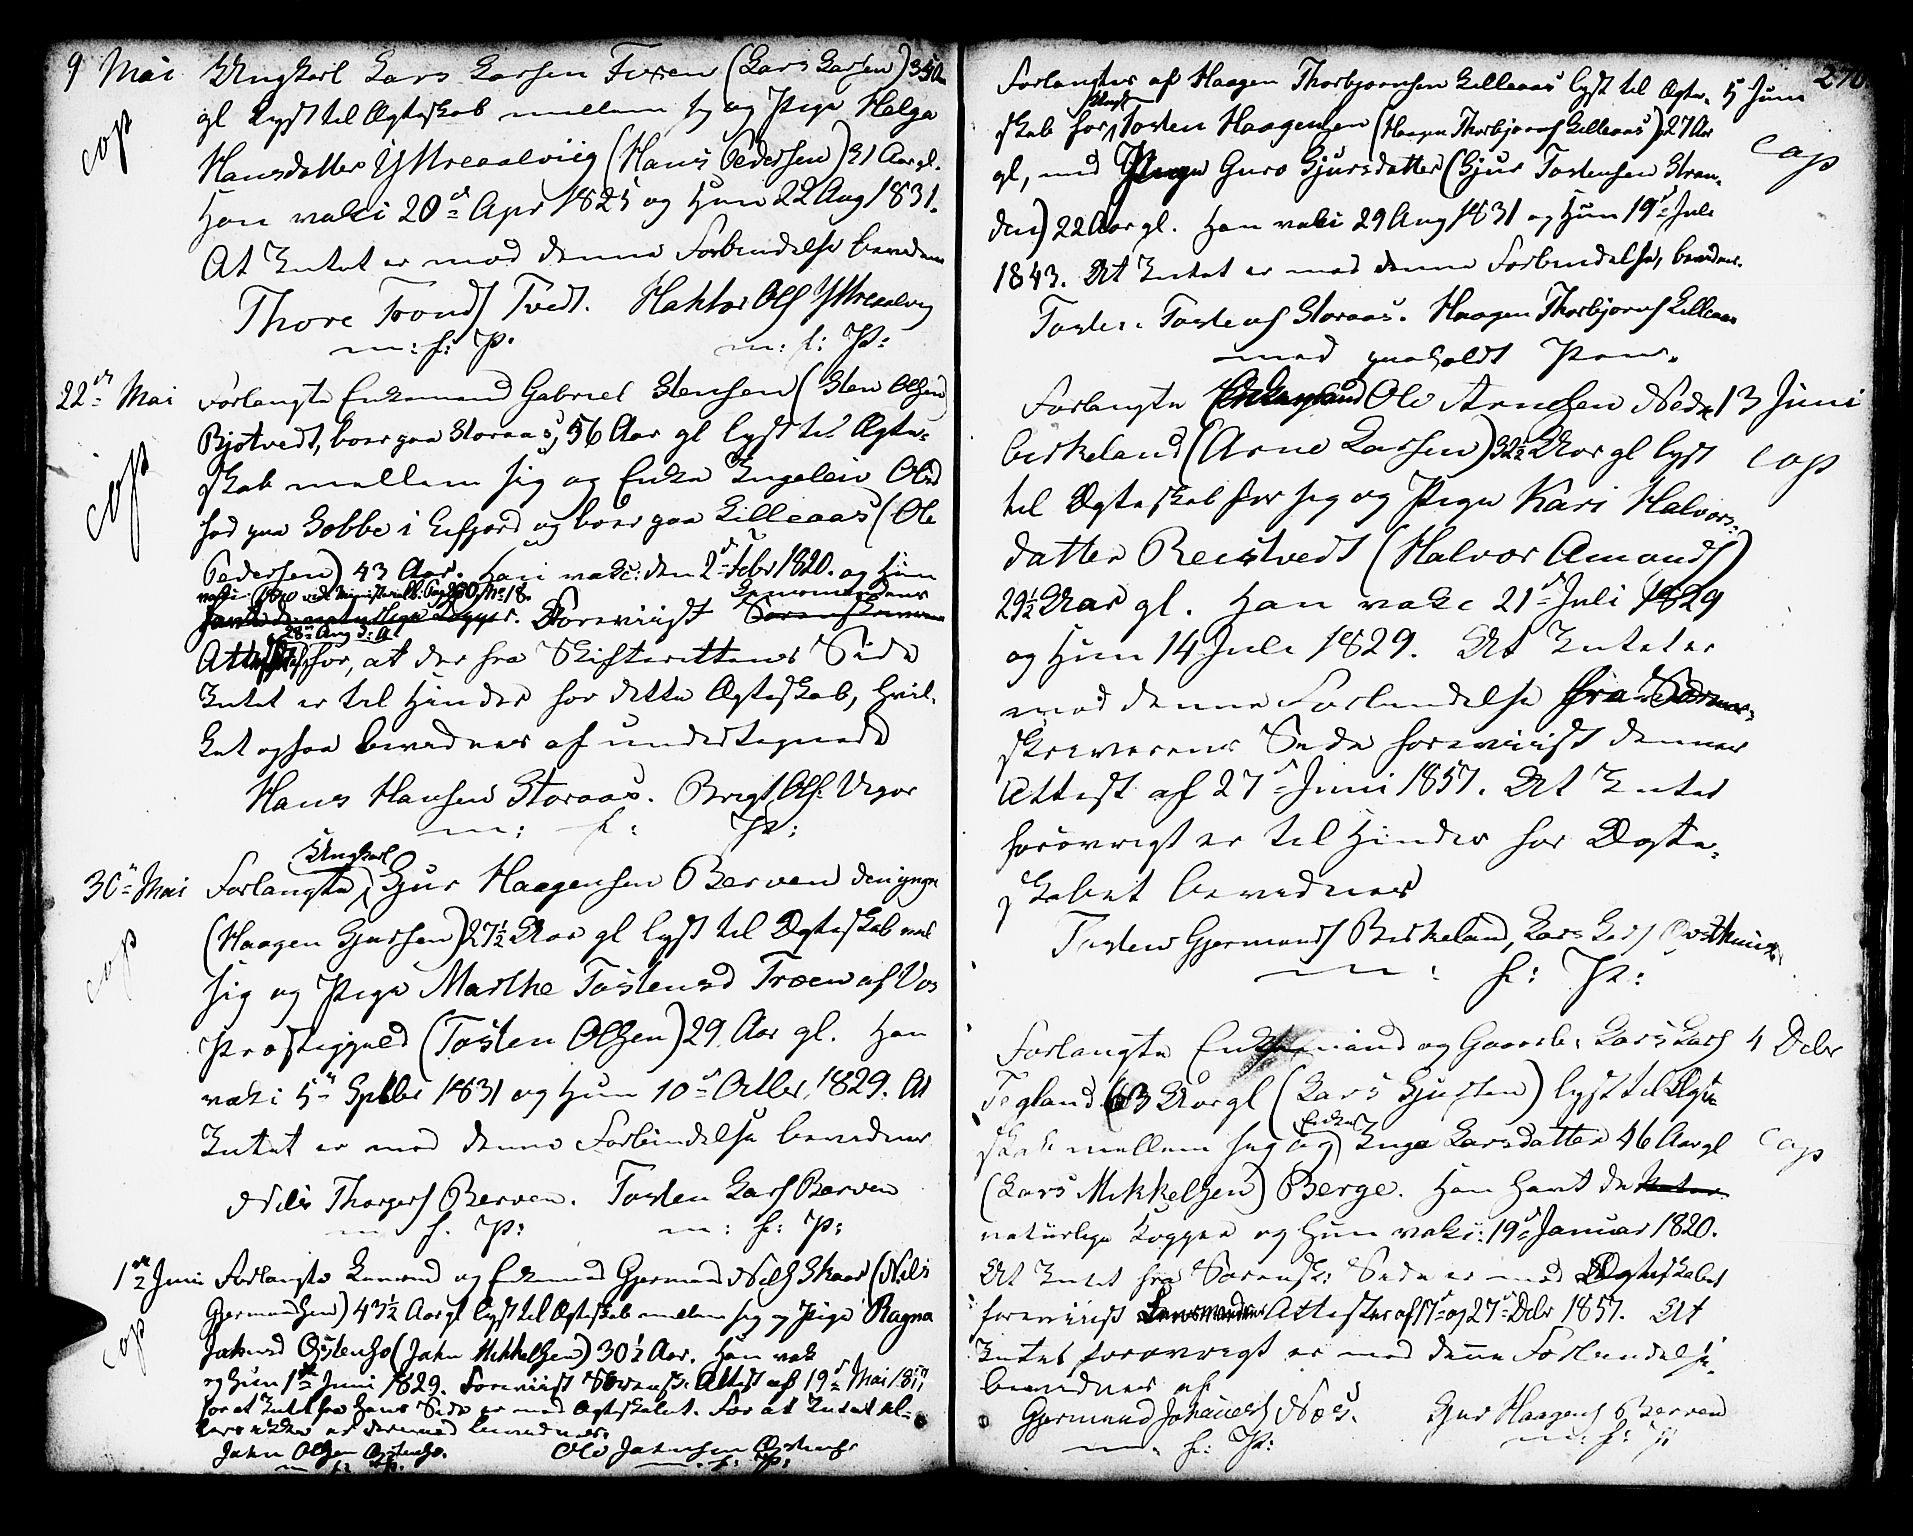 9 Mai Ungkarl Lars Larsen Tveen (Lars Larsen) 35 Aar
cop
gl lyst til Ægteskab mellem sig og Pige Helga
Hansdatter Yttreaalviig (Hans Pedersen) 31 Aar gl.
Han vakc: 20de Apr 1825 og Hun 22 Aug 1831.
At Intet er mod denne Forbindelse bevidnes
Thore Tronds Tvedt. Haktor Ols Yttreaalvig
m: f: P: m: f: P:
22de Mai Forlangte Enkemand Gabriel Stensen (Sten Olsen)
cop
Bjotvedt, boer paa Storaas, 56 Aar gl lyst til Ægte-
skab mellem sig og Enke Ingeleiv Olsd
fød paa Lobbe i Eifjord og boer paa Lilleaas (Ole
Pedersen) 43 Aar. Han vakc: den 2de Febr 1820. og Hun
Foreviist
28de Aug d: A:
Attest for, at der fra Skifterettens Side
Intet er til Hinder for dette Ægteskab, hvil-
ket ogsaa bevidnes af undertegnede
Hans Hansen Storaas. Brigt Ols: Vigor
m: f: P:
Ungkarl
30te Mai Forlangte Gjur Haagensen Berven den yngre
cop
(Haagen Gjursen) 27½ Aar gl lyst til Ægteskab mel
sig og Pige Marthe Tostensd Træen af Vos
Præstegjæld (Tosten Olsen) 29 Aar gl. Han
vakc: 5te Septbr 1831 og Hun 10de Octbr. 1829. At
Intet er mod denne Forbindelse bevidnes
Nils Thorgers Berven. Tosten Lars Berven
m: f: P: m: f: P:
1ste Juni Forlangte Enkemand Gjermund Nils Skaar (Nils
cop
Gjermundsen) 43½ Aar gl lyst til Ægteskab mellem sig og Pige Ragna
Jahnsd Øistensø (Jahn Mikkelsen) 30½ Aar. Han vak
og Hun 1ste Juni 1829. Foreviist Sorensk: Attest af 19de Mai 1857
for at Intet fra hans Side er mod Ægteskabet. For at Intet el-
lers er derimod bevidnes
Jahn Olsen Østensø. Ole Jahnsen Østensø
m: f: P: m: f: P:
270
Forlangtes af Haagen Thorbjornsen Lilleaas lyst til Ægte- 5 Juni
skab for Tosten Haagensen (Haagen Thorbjorns Lilleaas) 27 Aar
cop
gl, med Pige Guro Gjursdatter (Gjur Tostensen Stran-
den) 22 Aar gl. Han vakc: 29 Aug 1831 og Hun 19de Juli
1843. At Intet er mod denne Forbindelse, bevidnes.
Tosten Tostens Storaas. Haagen Thorbjorns Lilleaas
med paaholdt Pen.
Forlangte Ole Arnesen Nedre 13 Juni
birkeland (Arne Larsen) 32½ Aar gl lyst
cop
til Ægteskab for sig og Pige Kari Halvors-
datter Reistvedt (Halvor Amunds)
29½ Aar gl. Han vakc 21de Juli 1829
og Hun 14 Juli 1829. At Intet er
mod denne Forbindelse fra Soren-
skriverens Side foreviist dennes
Attest af 27de Juni 1857. At Intet
forøvrigt er til Hinder for Ægte-
skabet bevidnes
Tosten Gjermunds Birkeland, Lars Lars
m: f: P:
Forlangte Enkemand og Gaardb: Lars Lars 4 Decbr
Tegland 63 Aar gl (Lars Gjursen) lyst til Ægte
Enke
skab mellem sig og Inge Larsdatter 46 Aar gl
cop
(Lars Mikkelsen) Berge. Han havt de
naturlige Kopper og Hun vakc: 19de Januar 1820.
At Intet fra Sorensk: Side er mod Ægteskabet
foreviist Attester af 17de og 27de Decbr 1857. At
Intet forøvrigt er mod denne Forbindelse
bevidnes af
Gjermund Johannes Næs. Gjur Haagens Berven
m: f: P: m: f: P: